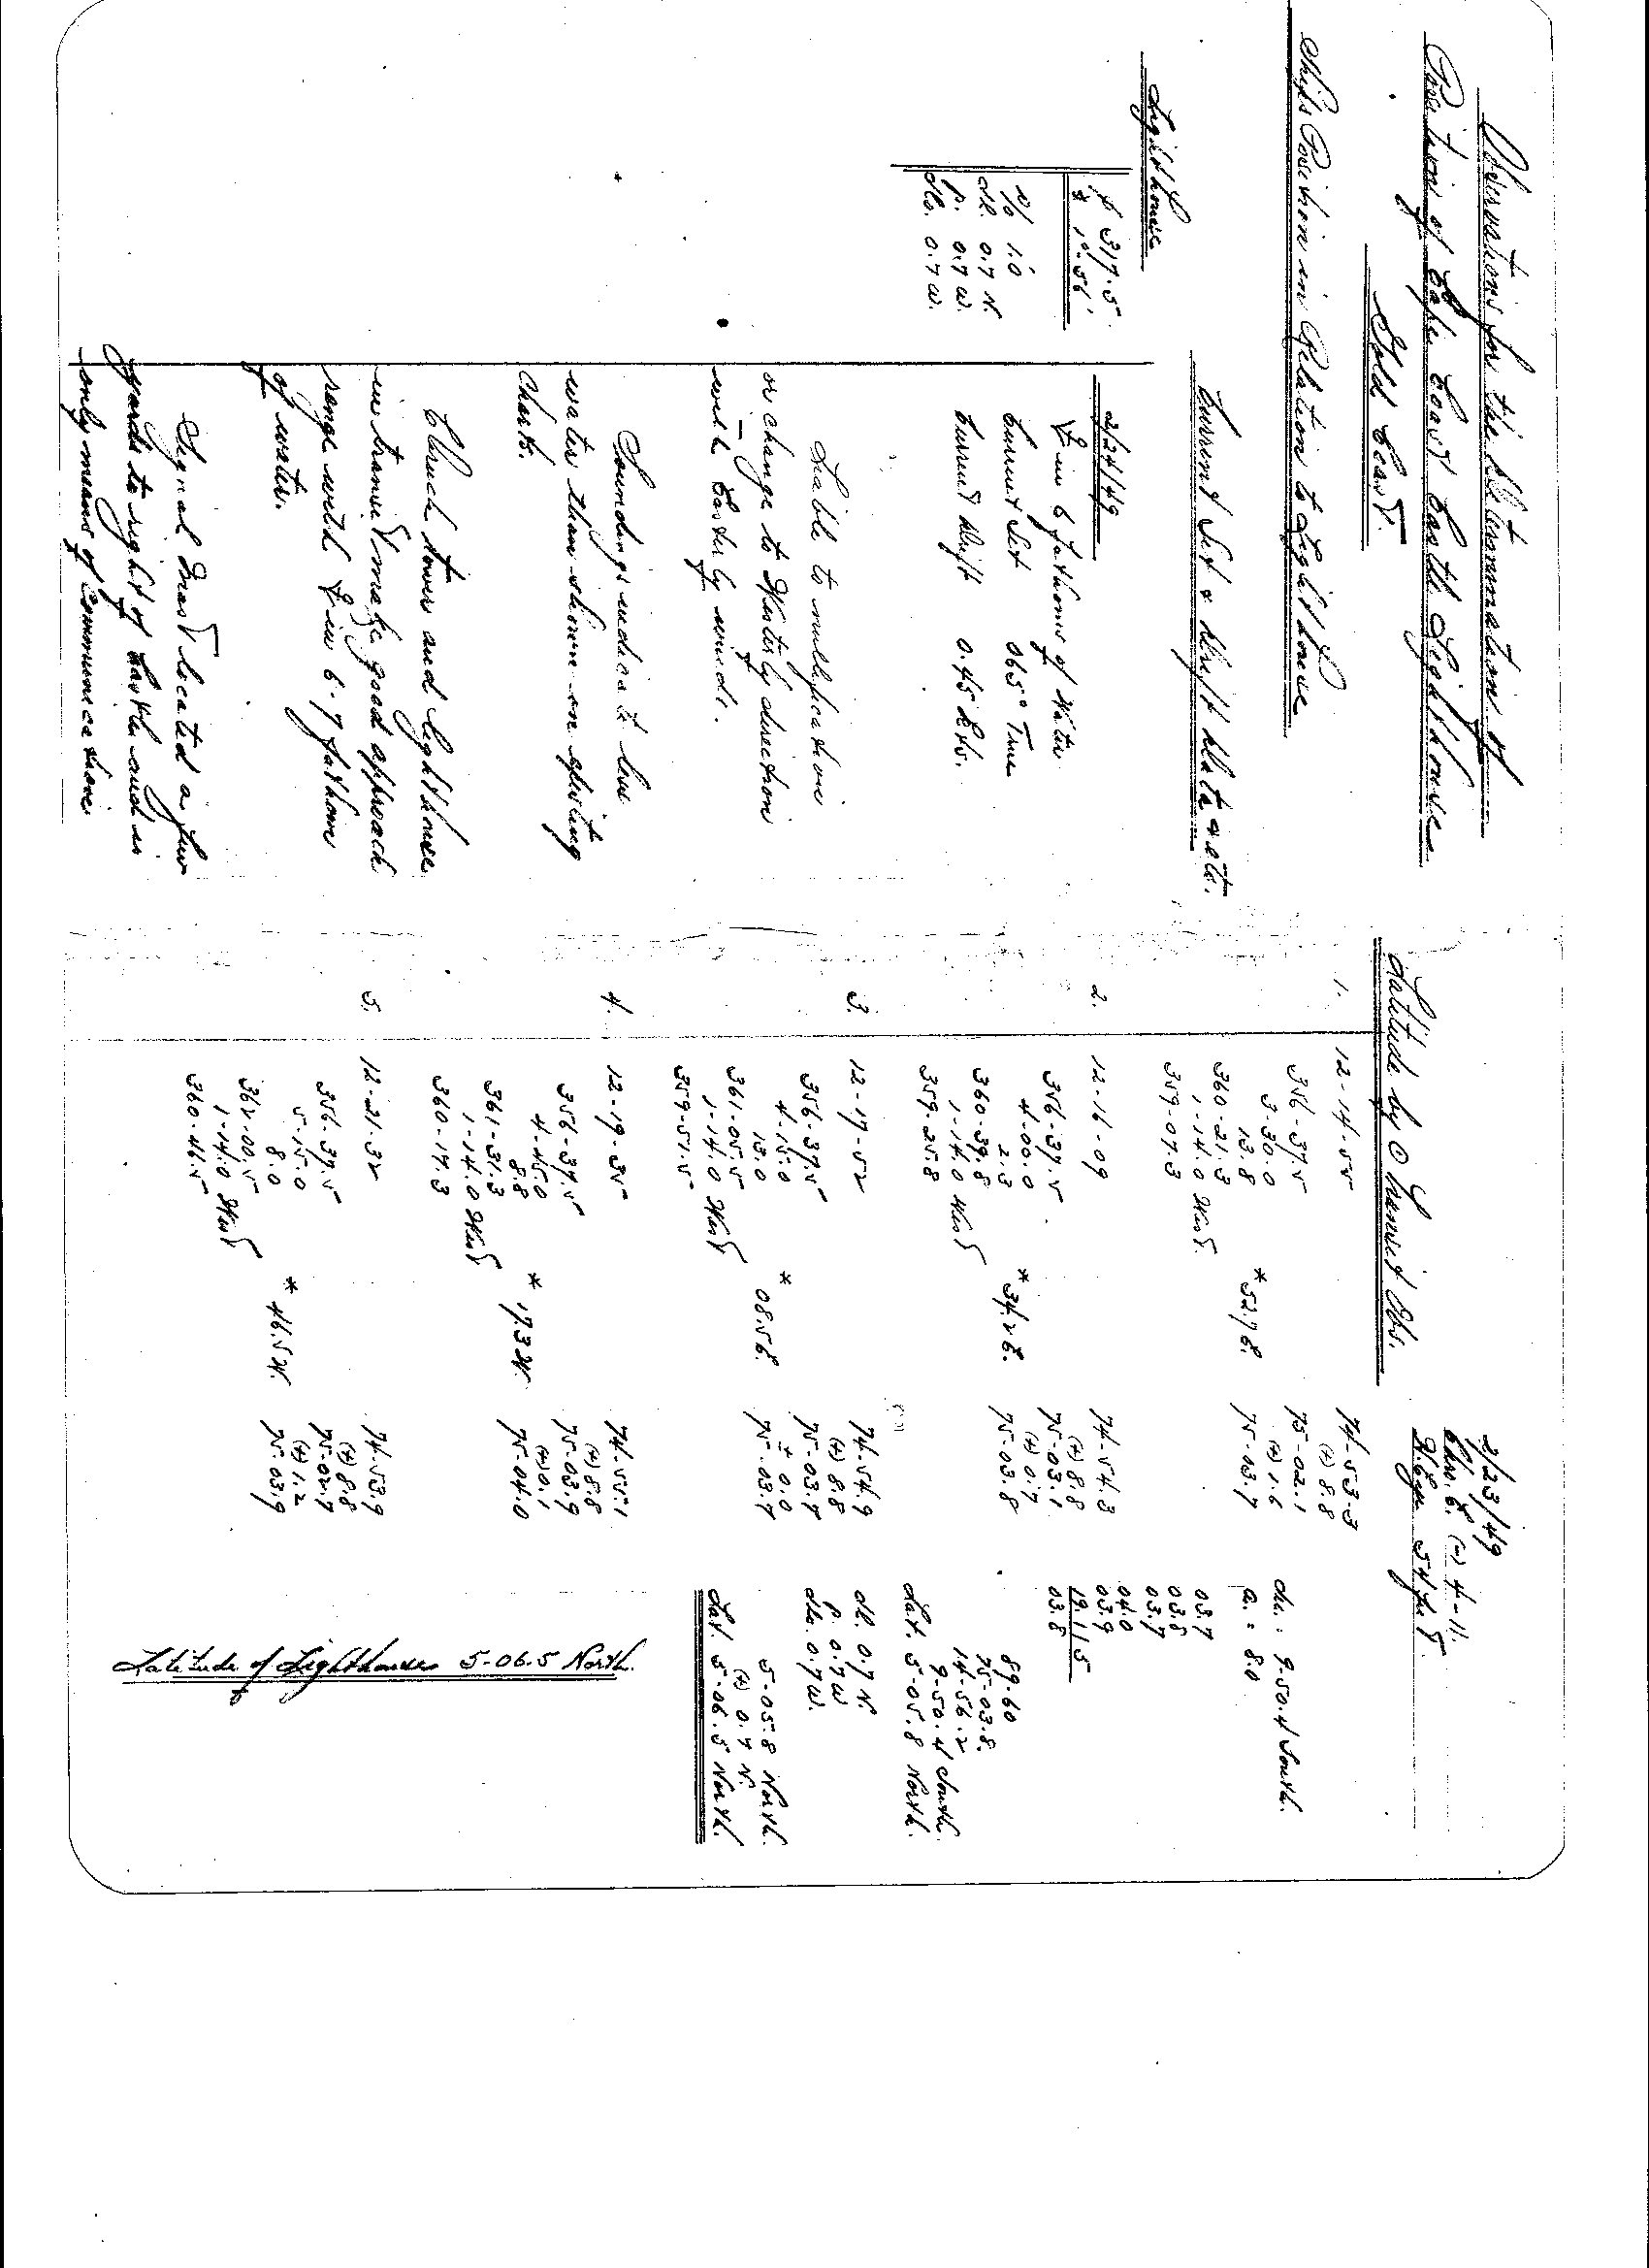 Observations for the Determination of
Position of Cape Coast Castle Lighthouse
Gold Coast.
Ships Position in Relation to Lighthouse
Lighthouse
317.5
1°.56'
1.0
0.7 N.
p. 0.7 W.
0.7 W.
Current Set & Drift Data & etc.
2/24/49
in 6 fathoms of Water
Current Set 065° True
Current Drift 0.45 Kts.
Liable to nullification
or change to Westerly direction
with Easterly winds.
Soundings indicate less
water than shown on existing
charts.
Church tower and lighthouse
in transit make good approach
range with in 6-7 fathoms
of water.
Signal Mast located a few
yards to right of Castle and is
only means of communications
Latitude by ⊙ Transit Obs.
2/23/49
Chro. E. (-) 4-11.
H. Eye 54 feet
1. 12-14-55
356-37.5
3-30.0
13.8
360-21.3
1-14.0 West.
359-07.3
* 52.7 E.
74-53.3
(+) 8.8
75-02.1
(+) 1.6
75-03.7
2. 12-16-09
356-37.5
4-00.0
2.3
360-39.8
1-14.0 West
359-25.8
* 34.2 E.
74-54.3
(+) 8.8
75-03.1
(+) 0.7
75-03.8
3. 12-17-52
356-37.5
4-15.0
13.0
361-05.5
1-14.0 West
359-51.5
* 08.5 E.
74-54.9
(+) 8.8
75-03.7
± 0.0
75-03.7
4. 12-19-35
356-37.5
4-45.0
8.8
361-31.3
1-14.0 West
360-17.3
* 17.3 W.
74-55.1
(+) 8.8
75-03.9
(+) 0.1
75-04.0
5. 12-21-32
356-37.5
5-15.0
8.0
362-00.5
1-14.0 West
360-46.5
* 46.5 W.
74-53.9
(+) 8.8
75-02.7
(+) 1.2
75-03.9
9-50.4 South.
a. = 8.0
03.7
03.8
03.7
04.0
03.9
19.1/5
03.8
89-60
75-03.8
14-56.2
9-50.4 South
Lat. 5-05.8 North.
0.7 N.
p. 0.7 W
0.7 W.
5-05.8 North.
(+) 0.7 N.
Lat. 5-06.5 North.
Latitude of Lighthouse 5-06.5 North.